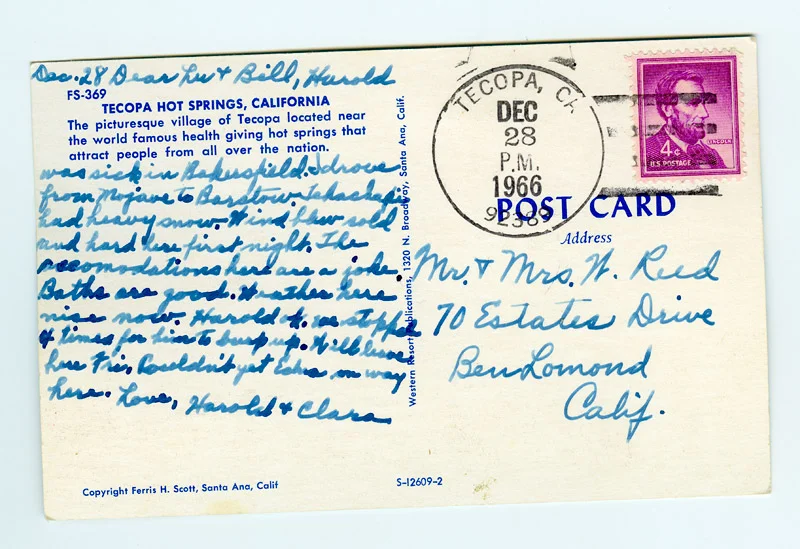 Dec. 28 Dear Lu & Bill, Harold
FS-369
TECOPA HOT SPRINGS, CALIFORNIA
The picturesque village of Tecopa located near
the world famous health giving hot springs that
attract people from all over the nation.
was sick in Bakersfield. I drove
from Mojave to Barstow. Tehachapi
had heavy snow. Wind blew cold
and hard here first night. The
accomodations here are a joke.
Baths are good. Weather here
nise now. Harold ok. we stopped
4 times for him to burp up. Will leave
here Fri. Couldn't get on way
here. Love, Harold & Clara
Copyright Ferris H. Scott, Santa Ana, Calif
S-12609-2
Western Resort Publications, 1320 N. Broadway, Santa Ana, Calif.
TECOPA, CA
DEC
28
P.M.
1966
92389
4¢
LINCOLN
U.S. POSTAGE
POST CARD
Address
Mr. & Mrs. W. Reed
70 Estates Drive
Ben Lomond
Calif.